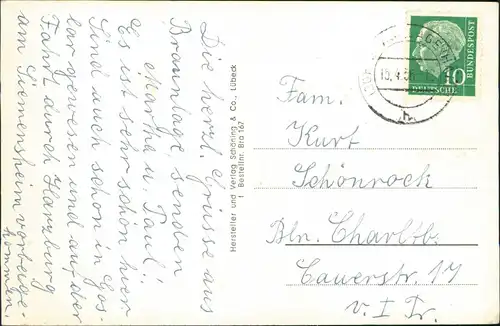 Die herzl. Grüsse aus
Braunlage senden
Martha u. Paul!!
Es ist sehr schön hier.
Sind auch schon in Gos-
lar gewesen und auf der
Fahrt durch Harzburg
am Siemensheim vorbeige-
kommen.
Hersteller und Verlag Schöning & Co., Lübeck
1 Bestellnr. Bra 167
10
DEUTSCHE
BUNDESPOST
Fam.
Kurt
Schönrock
Bln. Charlttb.
Cauerstr. 17
v. I Tr.